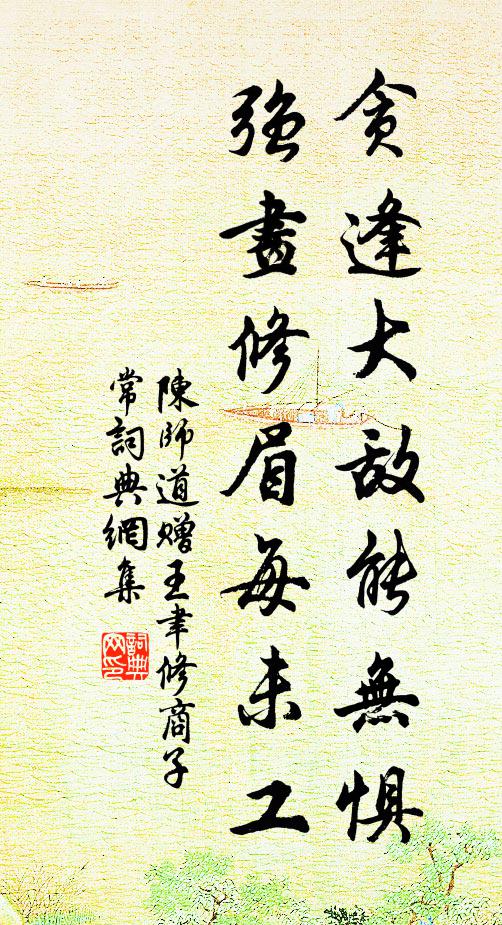 貪逢大敵能無惧
強畫修眉每未工
陳師道贈王聿修商子
常詞典網集
詞典
网印